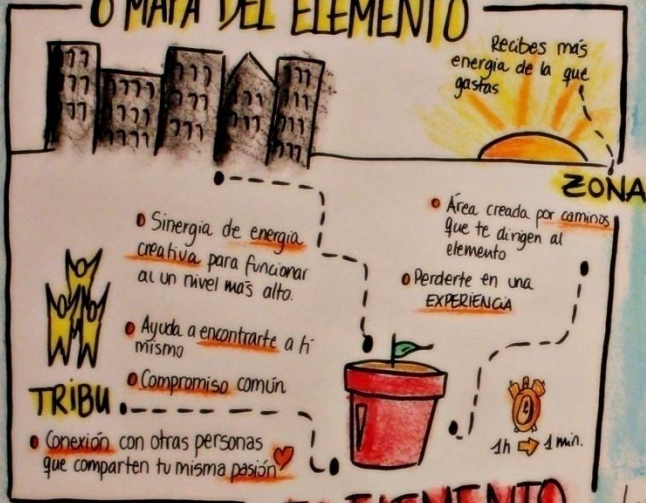 O MAPA DEL ELEMENTO
Recibes más
energia de la que
gastas
ZONA
Área creada por caminos
que te dirigen al
elemento
Perderte en una
EXPERIENCIA
Sinergia de energia
creativa para funcionar
a un nivel más alto.
Ayuda a encontrarte a ti
mismo
Compromiso común
TRIBU
Conexión con otras personas
que comparten tu misma pasión
1h ⇨ 1 min.
ELEMENTO